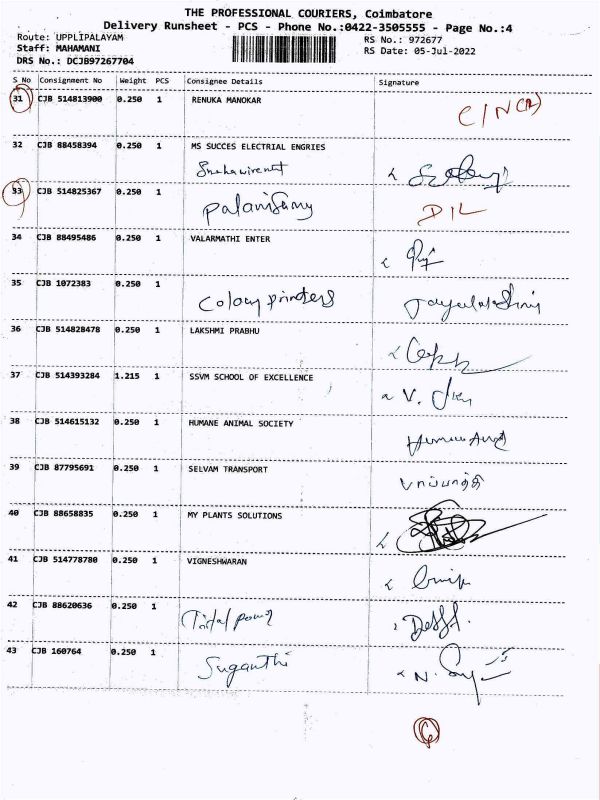 THE PROFESSIONAL COURIERS, Coimbatore
Delivery Runsheet - PCS - Phone No.:0422-3505555 - Page No.:4
Route: UPPLIPALAYAM RS No.: 972677
Staff: MAHAMANI RS Date: 05-Jul-2022
DRS No.: DCJB97267704
S No Consignment No Weight PCS Consignee Details Signature
31 CJB 514813900 0.250 1 RENUKA MANOKAR
32 CJB 88458394 0.250 1 MS SUCCES ELECTRIAL ENGRIES
33 CJB 514825367 0.250 1
Palanisamy D/L
34 CJB 88495486 0.250 1 VALARMATHI ENTER
35 CJB 1072383 0.250 1
Colour printers
36 CJB 514828478 0.250 1 LAKSHMI PRABHU
37 CJB 514393284 1.215 1 SSVM SCHOOL OF EXCELLENCE
38 CJB 514615132 0.250 1 HUMANE ANIMAL SOCIETY
39 CJB 87795691 0.250 1 SELVAM TRANSPORT
40 CJB 88658835 0.250 1 MY PLANTS SOLUTIONS
41 CJB 514778780 0.250 1 VIGNESHWARAN
42 CJB 88620636 0.250 1
43 CJB 160764 0.250 1
Suganthi